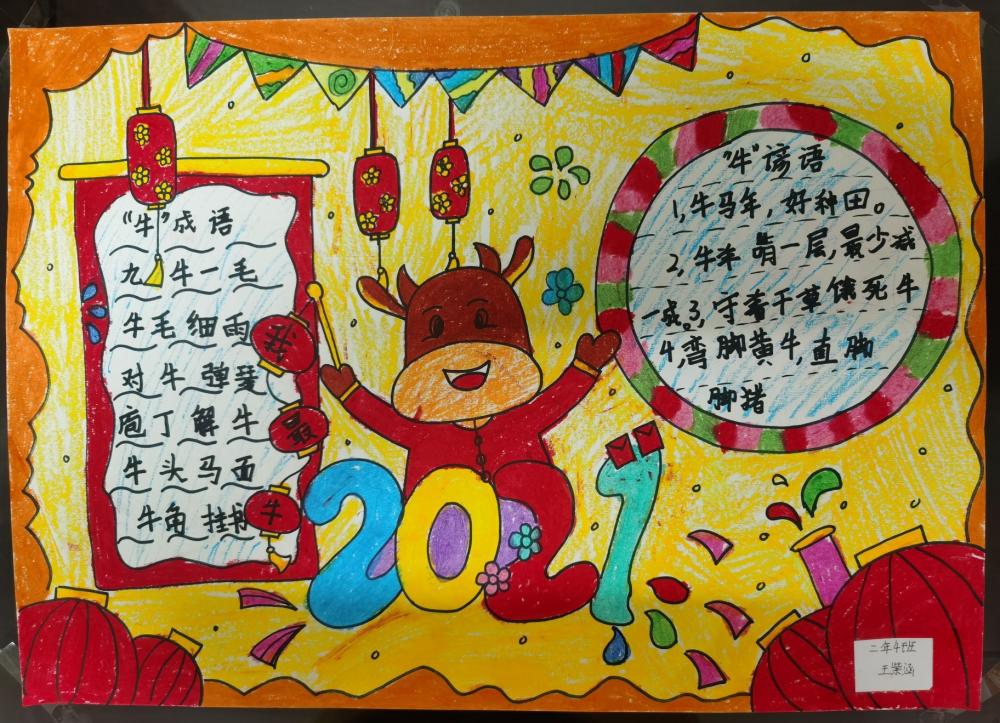 "牛"成语
九牛一毛
牛毛细雨
对牛弹琴
庖丁解牛
牛头马面
牛角挂书
我
最
牛
2021
"牛"谚语
1,牛马年,好种田。
2,牛羊啃一层,最少减
一成。3,守着干草饿死牛
4,弯脚黄牛,直脚
脚猪
二年4班
王荣涵